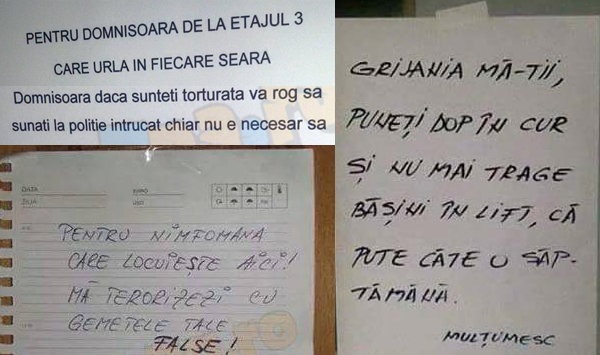 PENTRU DOMNISOARA DE LA ETAJUL 3
CARE URLA IN FIECARE SEARA
Domnisoara daca sunteti torturata va rog sa
sunati la politie intrucat chiar nu e necesar sa
DATA
ZIUA
PENTRU NIMFOMANA
CARE LOCUIEȘTE AICI!
MĂ TERORIZEZI CU
GEMETELE TALE
FALSE!
GRIJANIA MĂ-TII,
PUNEȚI DOP ÎN CUR
ȘI NU MAI TRAGE
BĂȘINI ÎN LIFT, CĂ
PUTE CÂTE O SĂP-
TĂMÂNĂ.
MULȚUMESC